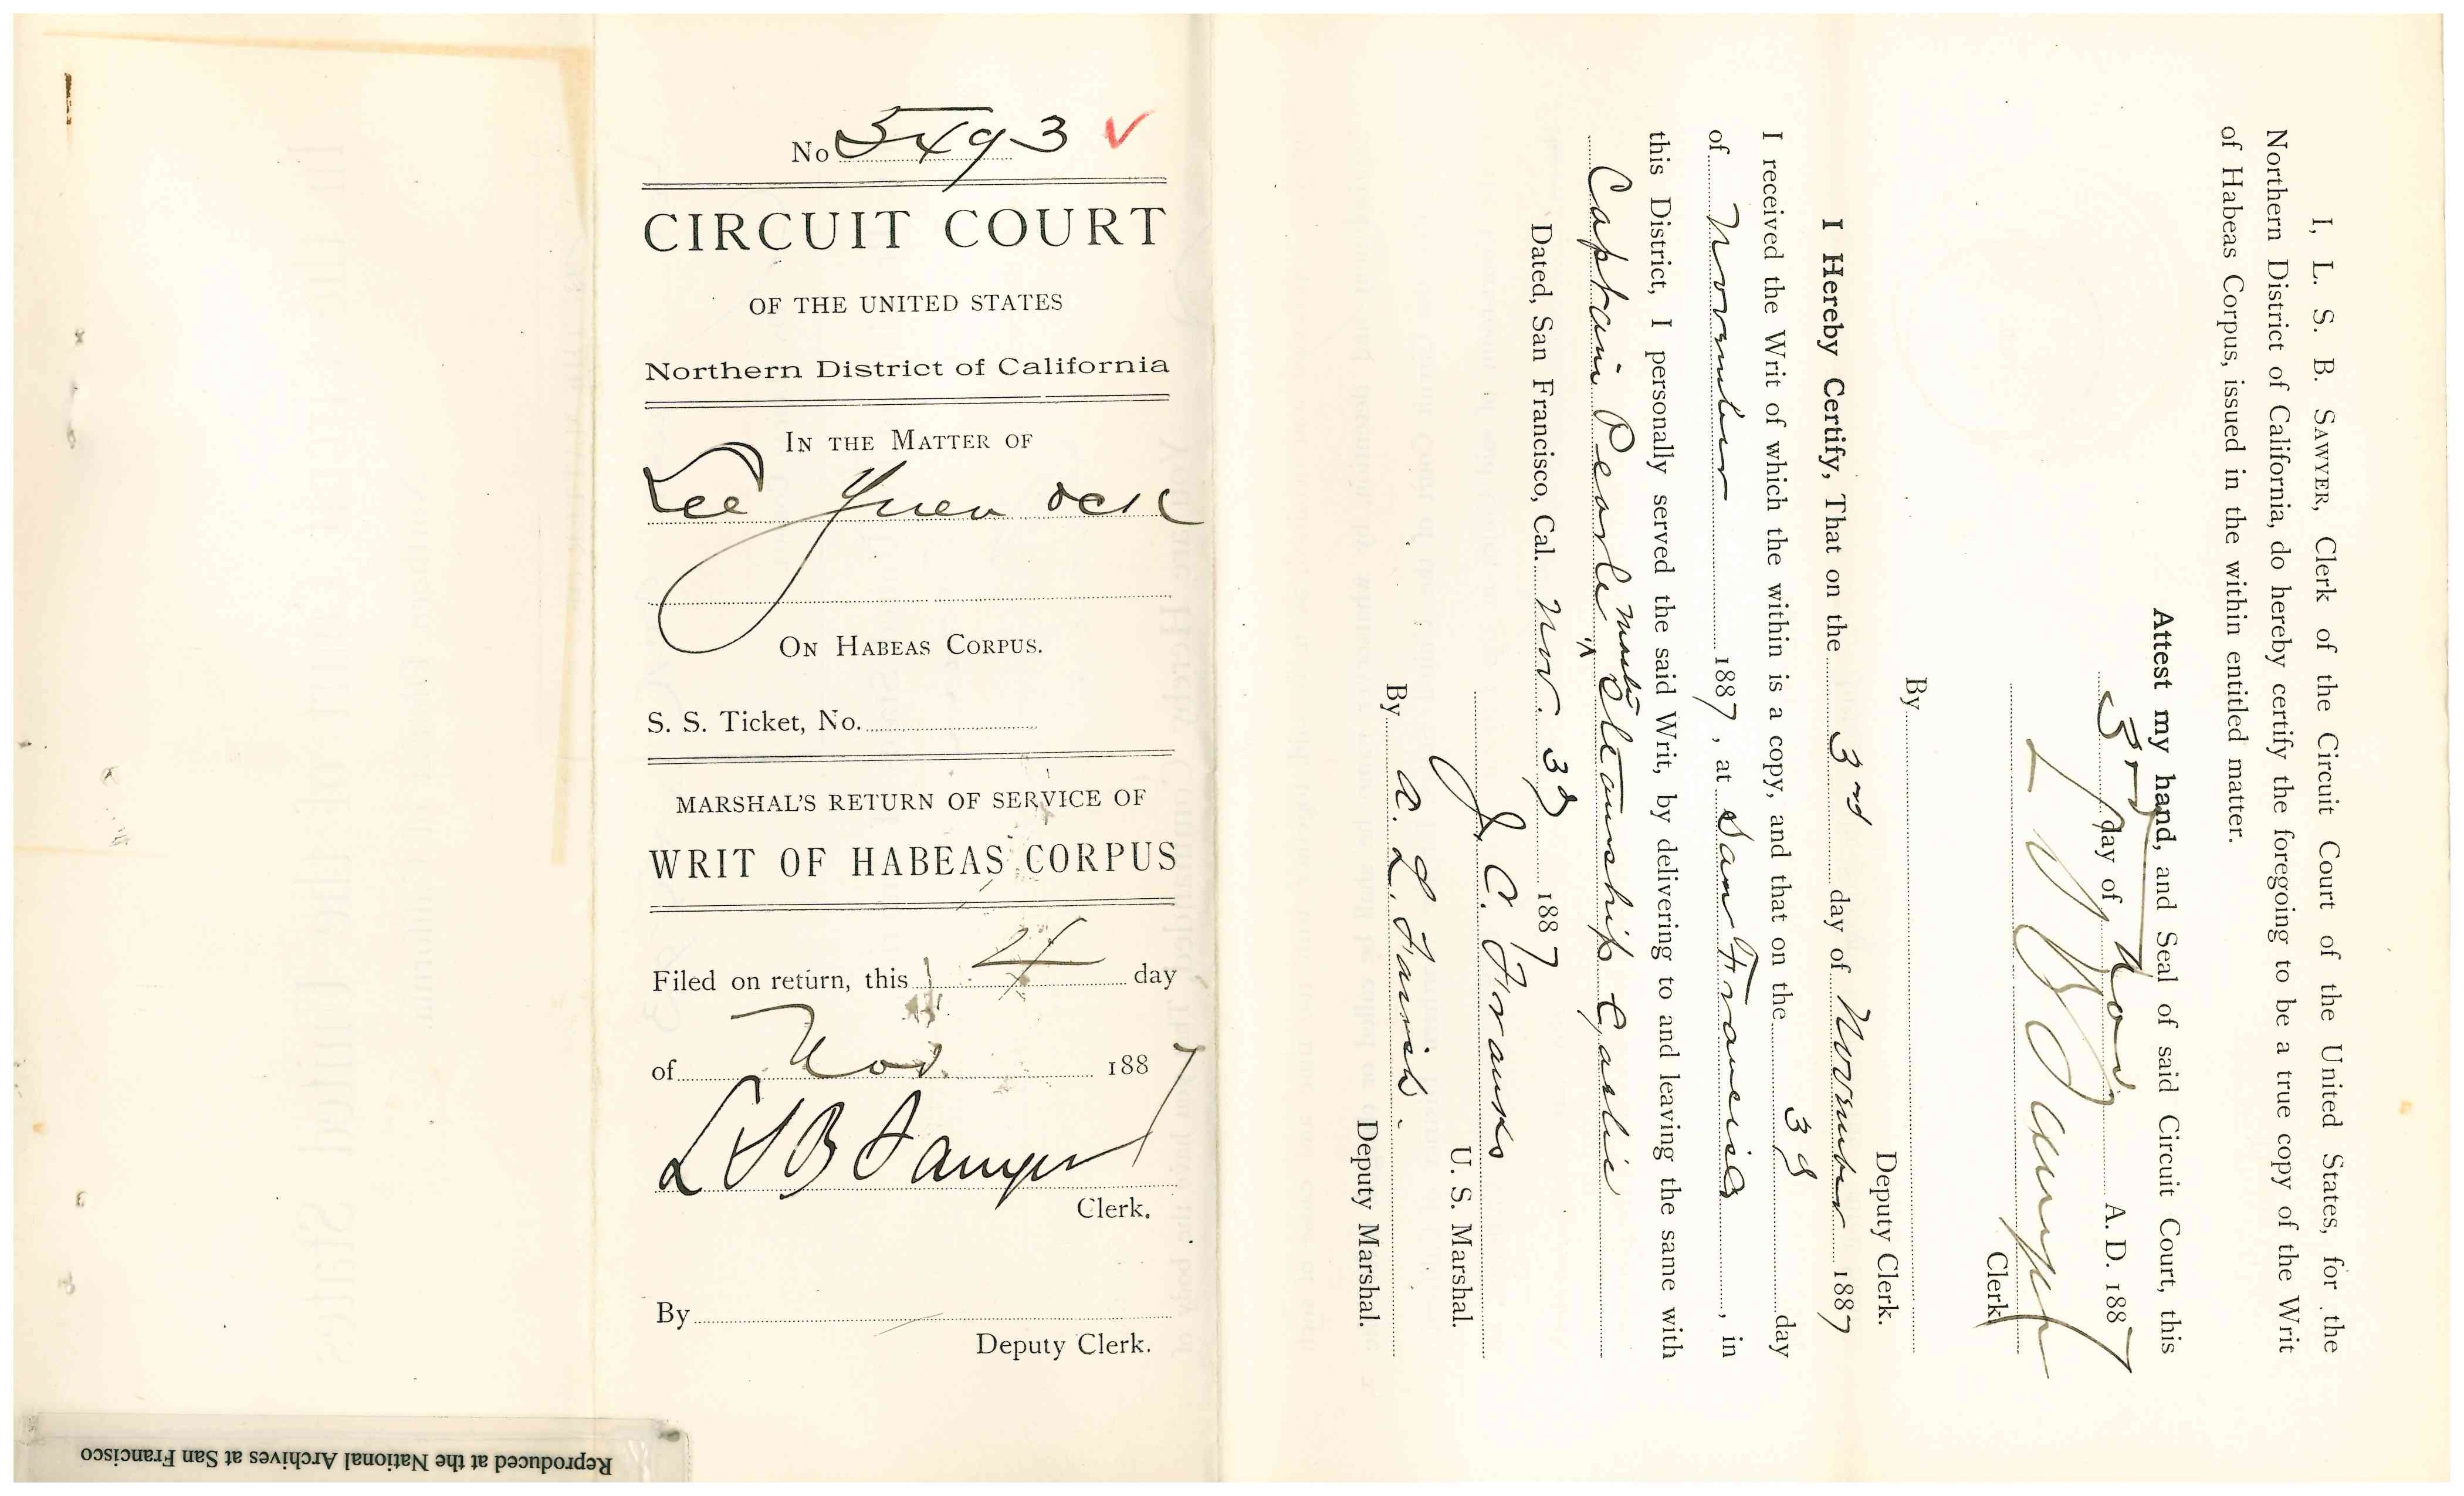 No 5493 ✓
CIRCUIT COURT
OF THE UNITED STATES
Northern District of California
IN THE MATTER OF
Lee Yuen
ON HABEAS CORPUS.
S. S. Ticket, No.
MARSHAL'S RETURN OF SERVICE OF
WRIT OF HABEAS CORPUS
Filed on return, this 4 day
of Nov. 1887
L S B Sawyer
Clerk.
By
Deputy Clerk.
I, L. S. B. SAWYER, Clerk of the Circuit Court of the United States, for the
Northern District of California, do hereby certify the foregoing to be a true copy of the Writ
of Habeas Corpus, issued in the within entitled matter.
Attest my hand, and Seal of said Circuit Court, this
day of Nov. A. D. 1887
L S B Sawyer
Clerk
By
Deputy Clerk.
I Hereby Certify, That on the 3rd day of November 1887
I received the Writ of which the within is a copy, and that on the 3d day
of November 1887, at San Francisco, in
this District, I personally served the said Writ, by delivering to and leaving the same with
Captain Pearle Master Steamship Gaelic
Dated, San Francisco, Cal. Nov. 3d 1887
J. C. Franks
U. S. Marshal.
By A. L. Farish.
Deputy Marshal.
Reproduced at the National Archives at San Francisco